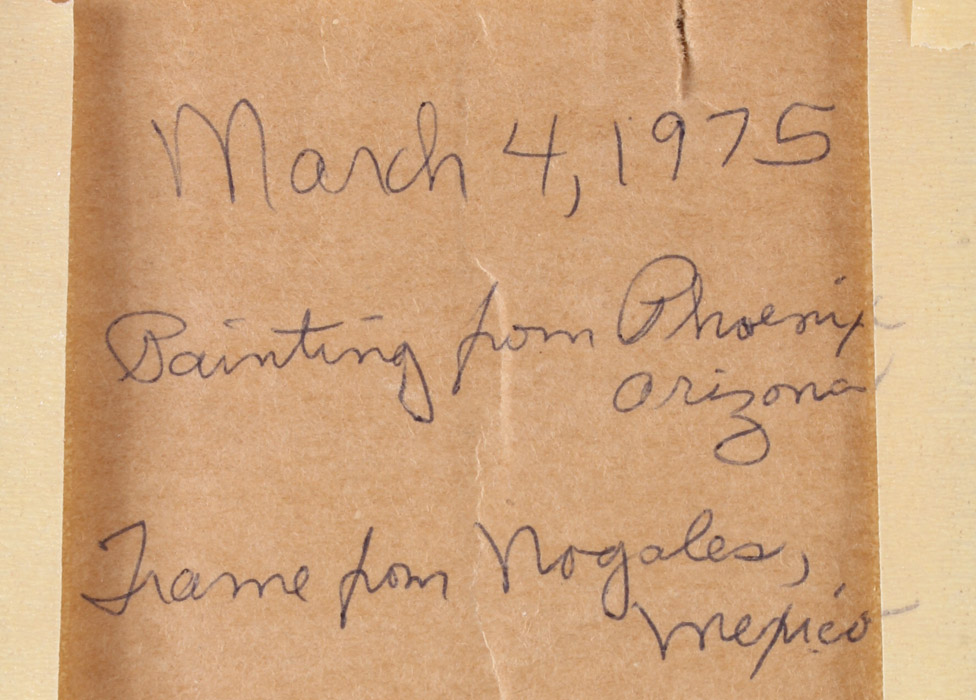 March 4, 1975
Painting from Phoenix
Arizona
Frame from Nogales,
Mexico